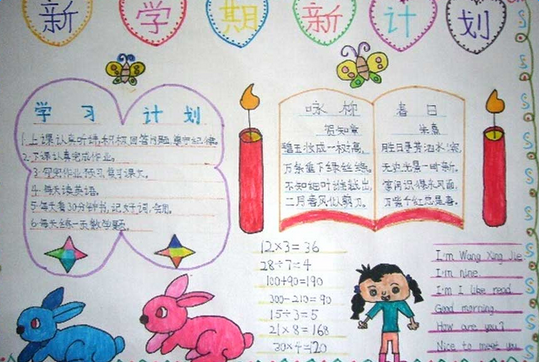 新学期新计划
学习计划
1.上课认真听讲,积极回答问题,
2.下课认真完成作业。
4.每天读英语。
6.每天练一页数学题。
咏柳
贺知章
碧玉妆成一树高,
万条垂下绿丝绦。
不知细叶谁裁出,
二月春风似剪刀。
春日
朱熹
胜日寻芳泗水滨,
无边光景一时新。
等闲识得东风面,
万紫千红总是春。
12×3=36
28÷7=4
100+90=190
300-210=90
15÷3=5
21×8=168
30×4=120
I'm Wang Xing Jie
I'm nine.
I'm I like read
Good morning.
How are you?
Nice to meet you